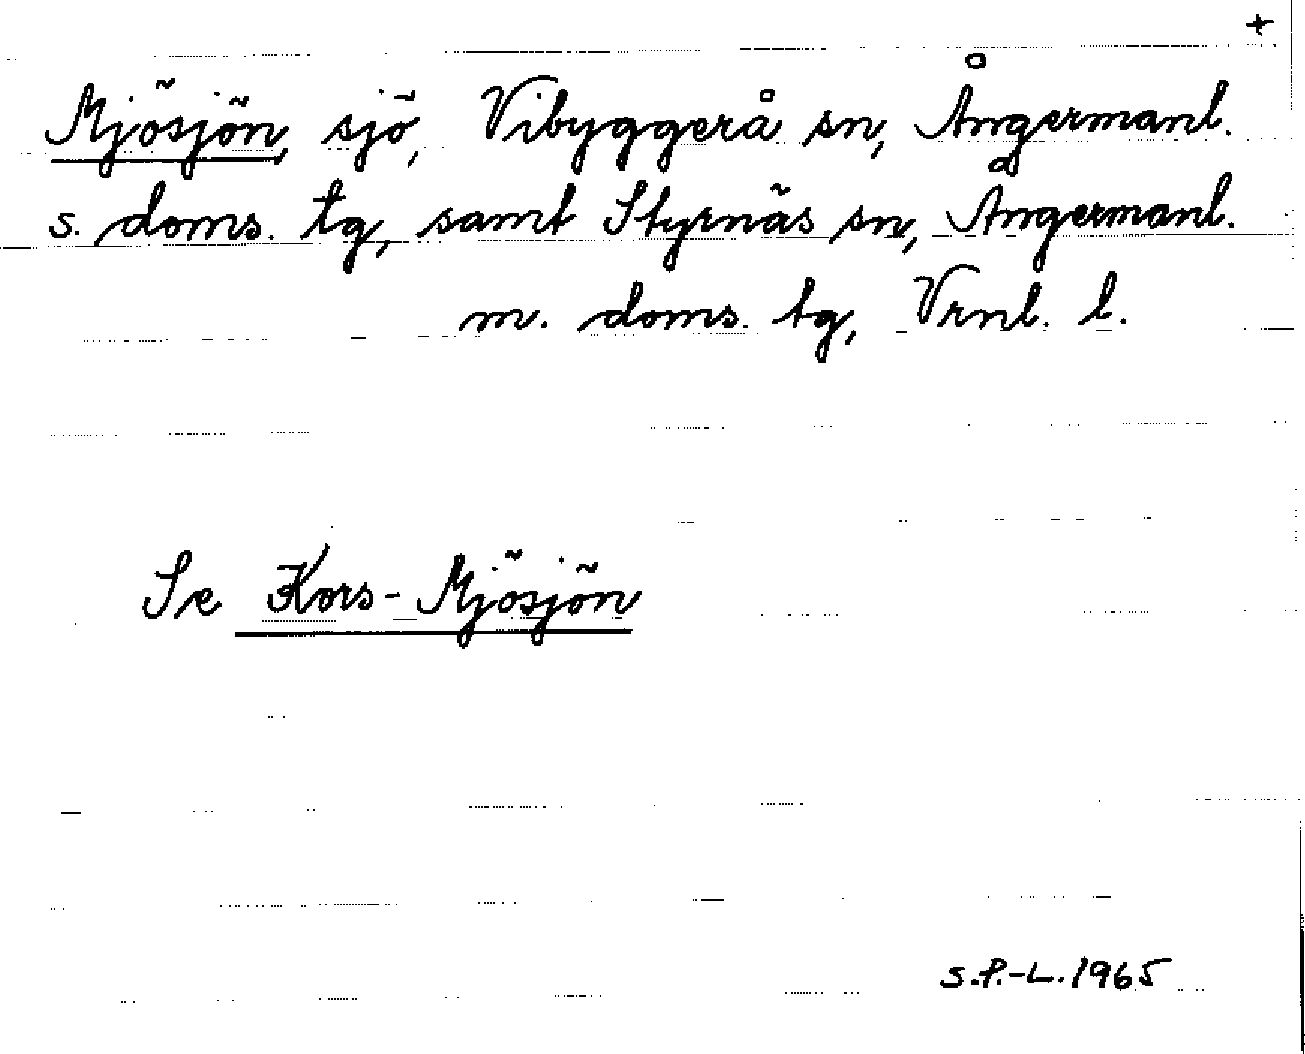 +
Mjösjön, sjö, Vibyggerå sn, Ångermanl.
s. doms. tg, samt Styrnäs sn, Ångermanl.
m. doms. tg, Vrnl. l.
Se Kors-Mjösjön
S.P.-L. 1965